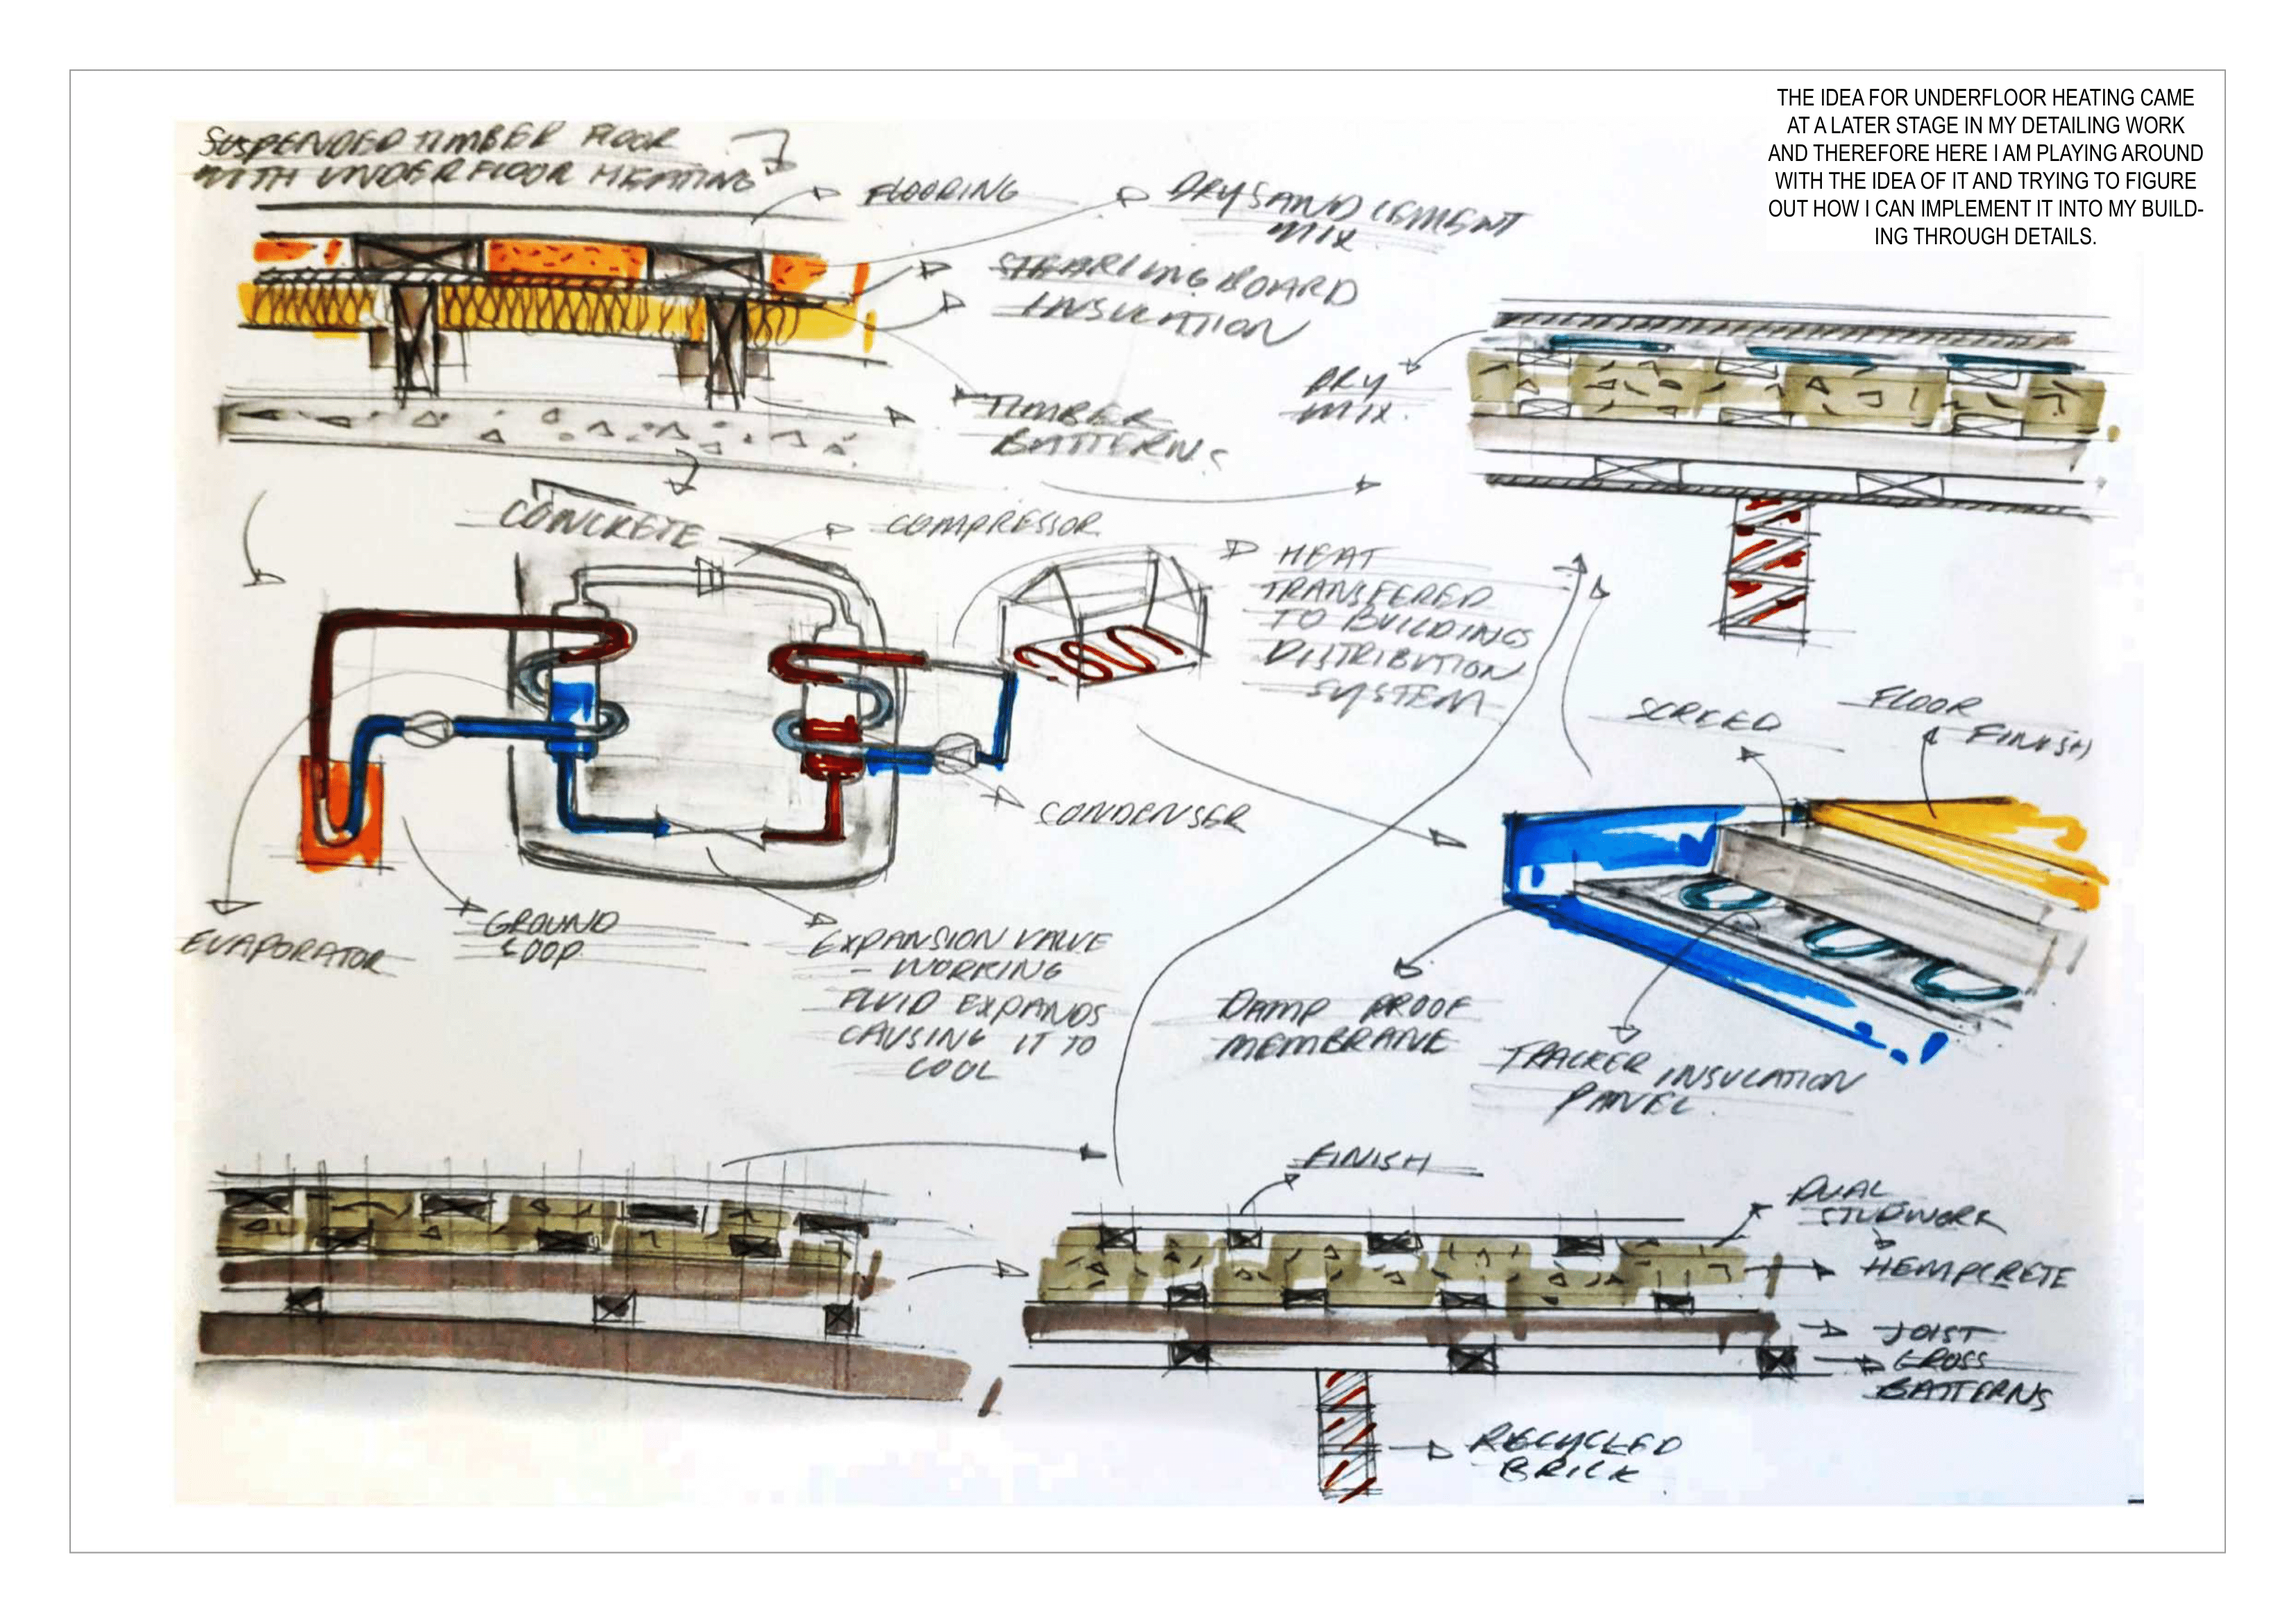 THE IDEA FOR UNDERFLOOR HEATING CAME
AT A LATER STAGE IN MY DETAILING WORK
AND THEREFORE HERE I AM PLAYING AROUND
WITH THE IDEA OF IT AND TRYING TO FIGURE
OUT HOW I CAN IMPLEMENT IT INTO MY BUILD-
ING THROUGH DETAILS.
SUSPENDED TIMBER FLOOR
WITH UNDERFLOOR HEATING
FLOORING
DRY SAND CEMENT
MIX.
BOARD
INSULATION
TIMBER
BATTERNS
CONCRETE
DRY
MIX.
COMPRESSOR
HEAT
TRANSFERED
TO BUILDINGS
DISTRIBUTION
SYSTEM
CONDENSER
EVAPORATOR
GROUND
LOOP
EXPANSION VALVE
- WORKING
FLUID EXPANDS
CAUSING IT TO
COOL
SCREED
FLOOR
FINISH
DAMP PROOF
MEMBRANE
TRACKER INSULATION
PANEL.
FINISH
DUAL
STUDWORK
HEMPCRETE
JOIST
CROSS
BATTERNS
RECYCLED
BRICK